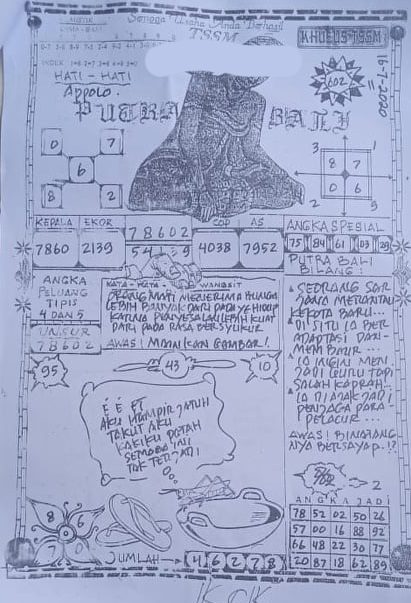 Semoga Usaha Anda Berhasil
TSSM
KHUSUS TSSM
MISTIK
HATI - HATI
Appolo.
602
16-7-2020
PUTRA BALI
0 7
6
8 2
3 1
8 7
0 6
2 9
KEPALA EKOR
7860 2139
78602
COP AS
4038 7952
ANGKA SPESIAL
75 84 61 03 29
PUTRA BALI
BILANG:
ANGKA
PELUANG
TIPIS
4 DAN 5
UNSUR
78602
KATA - KATA WANGSIT
ORANG MATI MENERIMA BUNGA
LEBIH BANYAK DARI PADA YG HIDUP
KARENA PENYESALAN LEBIH KUAT
DARI PADA RASA BERSYUKUR
AWAS! MAINKAN GAMBAR!
SEORANG
MERANTAU
KEKOTA BARU...
DI SITU IA BER
ADAPTASI DAN
MEMBAUR...
IA INGIN MEN
JADI GURU TAPI
SALAH KAPRAH..
IA DIAJAK JADI
PENJAGA PARA
PELACUR...
AWAS! BINATANG
NYA BERSAYAP.!?
95
43
10
É É ET
AKU HAMPIR JATUH
TAKUT AKU
KAKIKU PATAH
SEMOGA INI
TAK TERJADI
8 6
7 0
JUMLAH → 4 6 2 7 8
2
ANGKA JADI
78 52 02 50 26
57 00 16 88 92
66 48 22 30 77
20 87 18 62 89